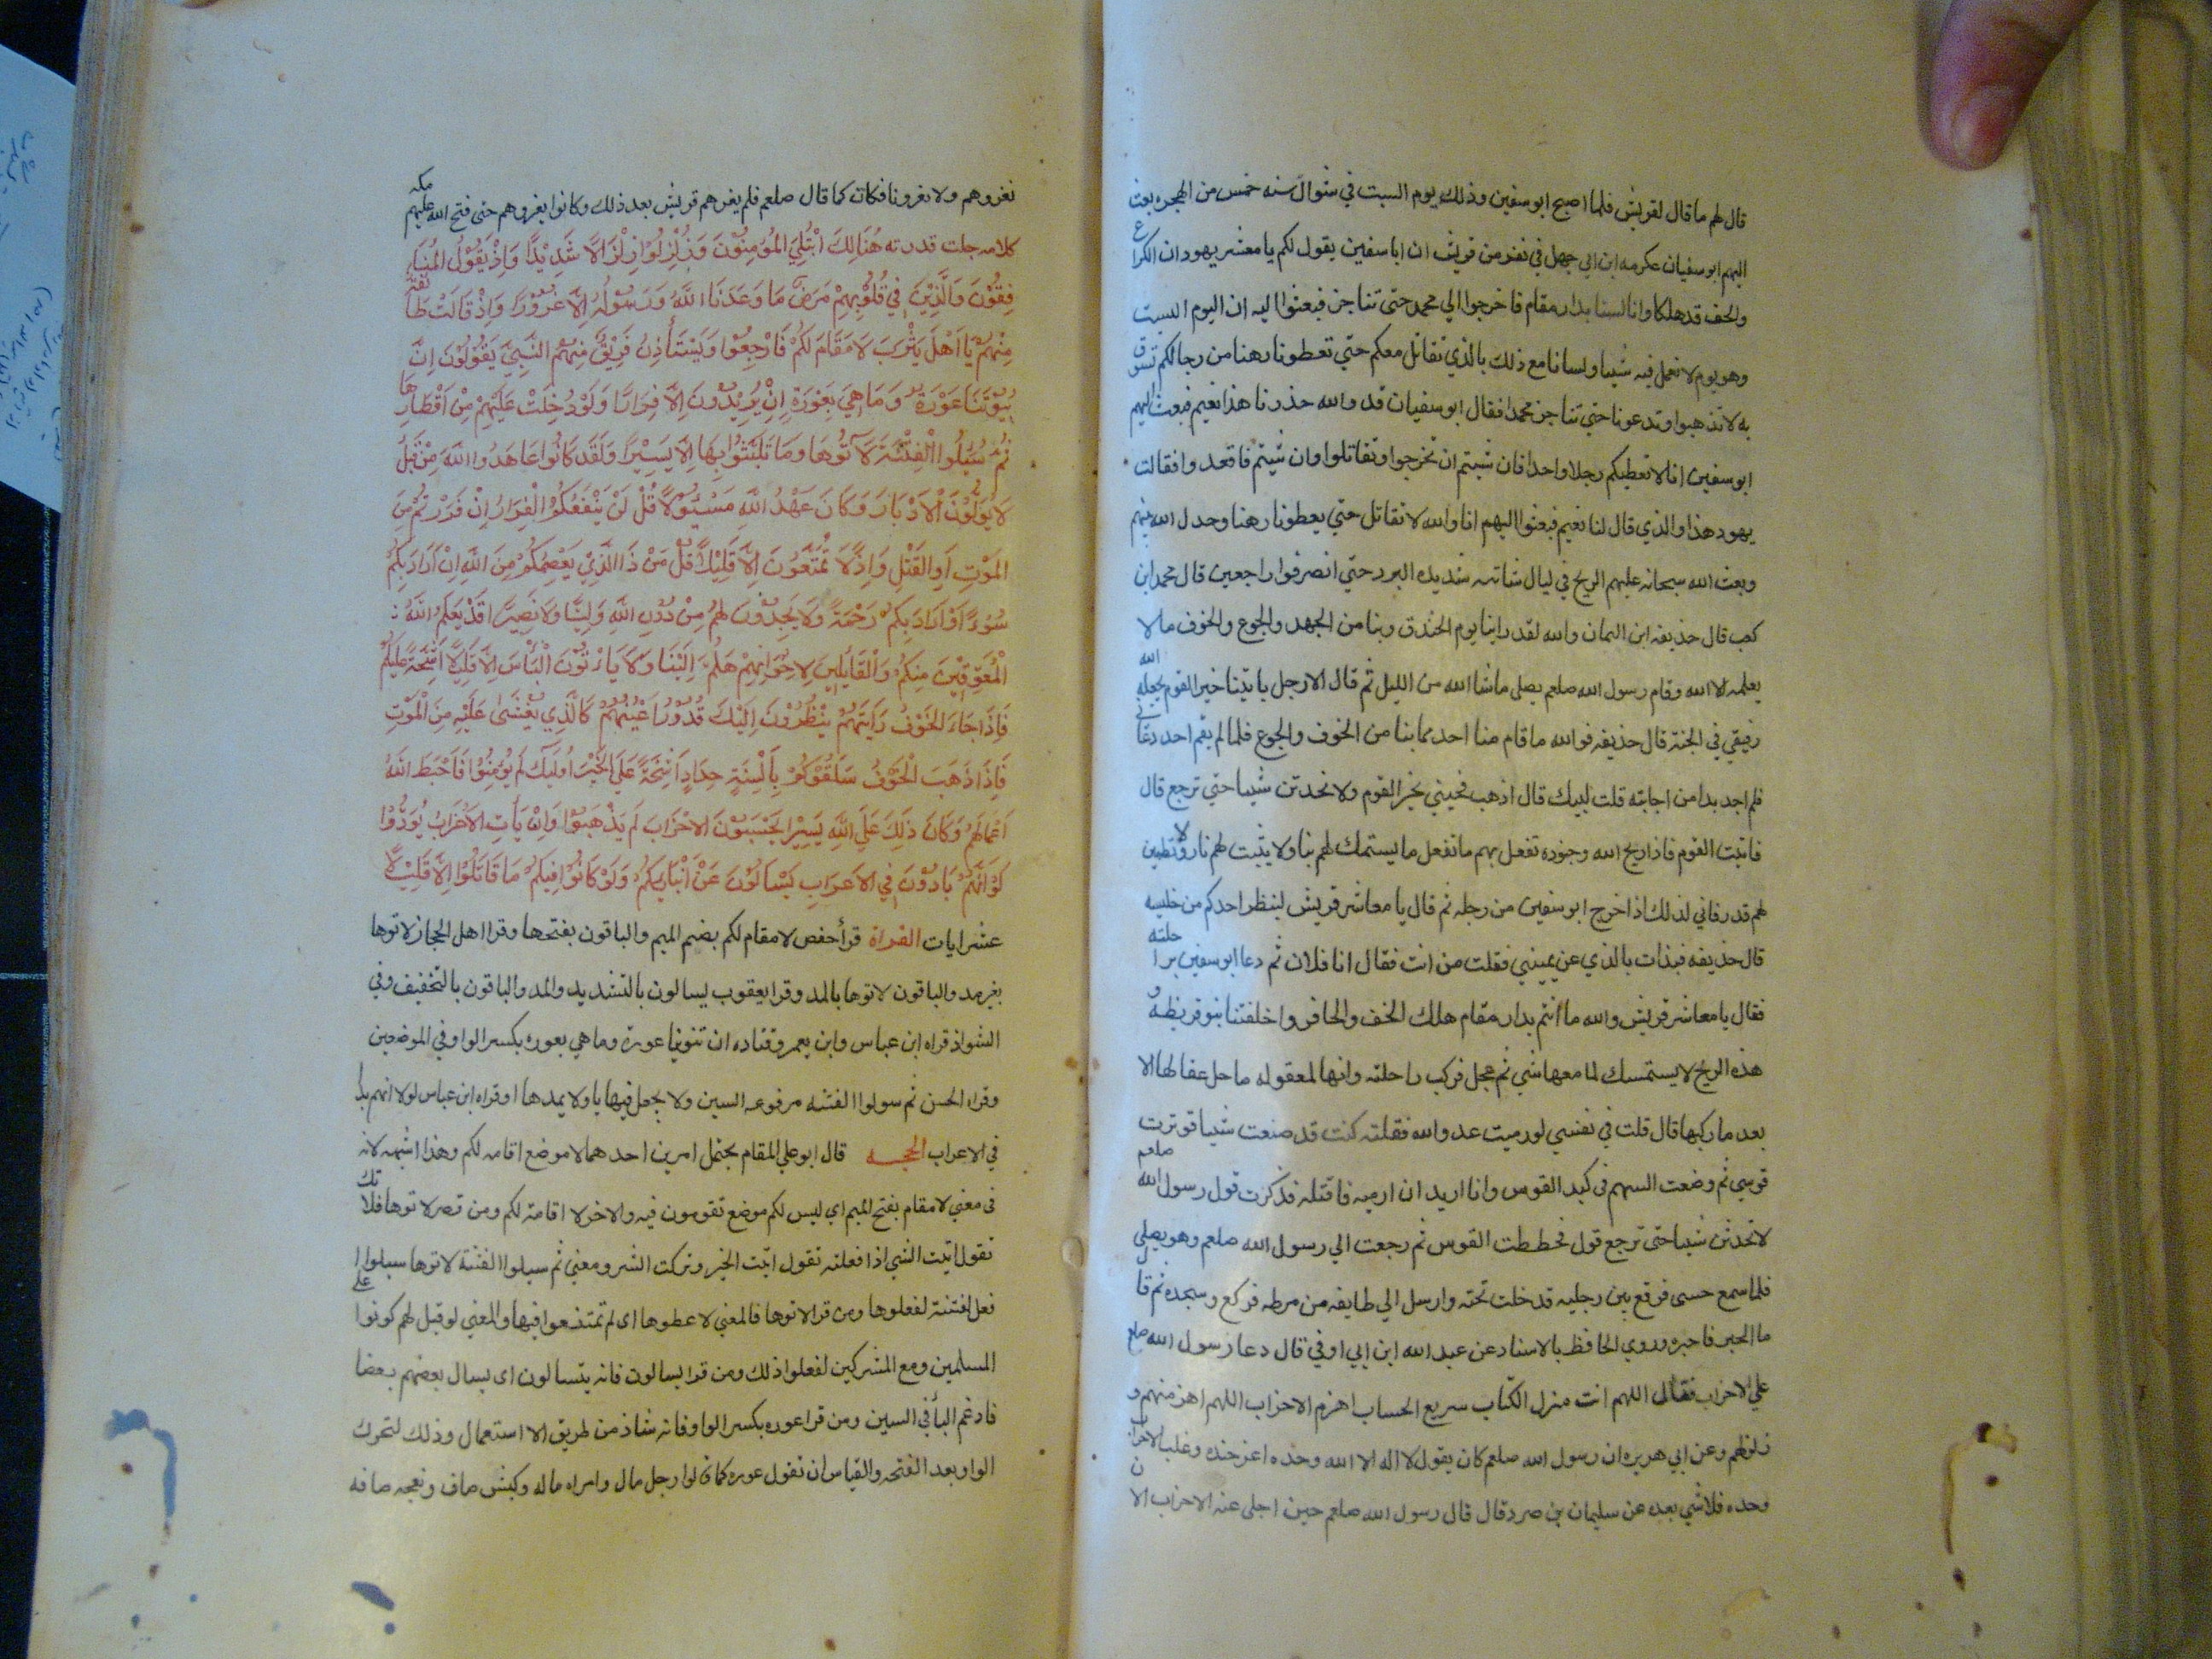 قال لهم ما قال لقريش فلما اصبح ابو سفين وذلك يوم السبت في شوال سنه خمس من الهجره بعث
اليهم ابو سفيان عكرمه ابن ابي جهل في نفر من قريش ان ابا سفين يقول لكم يا معشر يهود ان الكراع
والخف قد هلكا وانا لسنا بدار مقام فاخرجوا الي محمد حتي نناجز فبعثوا اليه ان اليوم السبت
وهو يوم لا نعمل فيه شيا ولسنا مع ذلك بالذي نقاتل معكم حتي تعطونا رهنا من رجالكم نثق
به لا تذهبوا وتدعونا حتي نناجز محمدا فقال ابو سفيان قد والله حذرنا هذا نعيم فبعث اليهم
ابو سفين انا لا نعطيكم رجلا واحدا فان شيتم ان تخرجوا وتقاتلوا وان شيتم فاقعدوا فقالت
يهود هذا والذي قال لنا نعيم فبعثوا اليهم انا والله لا نقاتل حتي يعطونا رهنا وخذل الله بينهم
وبعث الله سبحانه عليهم الريح في ليال شاتيه شديده البرد حتي انصرفوا راجعين قال محمد ابن
كعب قال حذيفه ابن اليمان والله لقد راينا يوم الخندق وبنا من الجهد والجوع والخوف ما لا
يعلمه الا الله وقام رسول الله صلعم يصلي ما شا الله من الليل ثم قال الا رجل ياتينا خبر القوم يجعله الله
رفيقي في الجنة قال حذيفه فوالله ما قام منا احد مما بنا من الخوف والجوع فلما لم يقم احد دعاني
فلم اجد بدا من اجابته قلت لبيك قال اذهب فجيني بخبر القوم ولا تحدثن شيا حتي ترجع قال
فاتيت القوم فاذا ريح الله وجنوده تفعل بهم ما تفعل ما يستمسك لهم بنا ولا يثبت لهم نار ولا تطمين
لهم قدر فاني لذلك اذا خرج ابو سفين من رحله ثم قال يا معاشر قريش لينظر احدكم من جليسه
قال حذيفه فبدات بالذي عن يميني فقلت من انت فقال انا فلان ثم دعا ابو سفين براحلته
فقال يا معاشر قريش والله ما انتم بدار مقام هلك الخف والحافر واخلفتنا بنو قريظه و
هذه الريح لا يستمسك لنا معها شي ثم عجل فركب راحلته وانها لمعقوله ما حل عقالها الا
بعد ما ركبها قال قلت في نفسي لو رميت عدو الله فقتلته كنت قد صنعت شيا فوترت
قوسي ثم وضعت السهم في كبد القوس وانا اريد ان ارميه فاقتله فذكرت قول رسول الله صلعم
لا تحدثن شيا حتي ترجع قول فحططت القوس ثم رجعت الي رسول الله صلعم وهو يصلي
فلما سمع حسي فرج بين رجليه قدخلت تحته وارسل الي طايفه من مرطه فركع وسجد ثم قال
ما الخبر فاخبره وروي الحافظ بالاسناد عن عبد الله ابن ابي اوفي قال دعا رسول الله صلع
علي الاحزاب فقال اللهم انت منزل الكتاب سريع الحساب اهزم الاحزاب اللهم اهزمهم و
زلزلهم وعن ابي هريره ان رسول الله صلعم كان يقول لا اله الا الله وحده اعز جنده وغلب الاحزاب
وحده فلا شي بعده عن سليمان بن صرد قال قال رسول الله صلعم حين اجلي عنه الاحزاب الان
نغزوهم ولا يغزونا فكان كما قال صلعم فلم يغزهم قريش بعد ذلك وكانوا يغزوهم حتي فتح الله عليهم مكه
كلامه جلت قدرته هُنَالِكَ ابْتُلِيَ المُؤمِنُوْنَ وَزُلْزِلُوْا زِلْزَالًا شَدِيْدًا وَاِذْ يَقُوْلُ المُنَا
فِقُوْنَ وَالَّذِيْنَ فِي قُلُوْبِهِمْ مَرَضٌ مَا وَعَدَنَا اللَّهُ وَرَسُوْلُهُ اِلَّا غُرُوْرًا وَاِذْ قَالَتْ طَائفة
مِنْهُمْ يَا اَهْلَ يَثْرِبَ لَا مَقَامَ لَكُمْ فَارْجِعُوْا وَيَسْتَأْذِنُ فَرِيْقٌ مِنْهُمُ النَّبِيَّ يَقُوْلُوْنَ اِنَّ
بُيُوْتَنَا عَوْرَةٌ وَمَا هِيَ بِعَوْرَةٍ اِنْ يُرِيْدُوْنَ اِلَّا فِرَارًا وَلَوْ دُخِلَتْ عَلَيْهِمْ مِنْ اَقْطَارِهَا
ثُمَّ سُيِلُوا الْفِتْنَةَ لَآتُوهَا وَمَا تَلَبَّثُوْا بِهَا اِلَّا يَسِيْرًا وَلَقَدْ كَانُوْا عَاهَدُوا اللَّهَ مِنْ قَبْلُ
لَا يُوَلُّوْنَ الْاَدْبَارَ وَكَانَ عَهْدُ اللَّهِ مَسْئُوْلًا قُلْ لَنْ يَنْفَعَكُمُ الْفِرَارُ اِنْ فَرَرْتُمْ مِنَ
المَوْتِ اَوِ القَتْلِ وَاِذًا لَا تُمَتَّعُوْنَ اِلَّا قَلِيْلًا قُلْ مَنْ ذَا الَّذِيْ يَعْصِمُكُمْ مِنَ اللَّهِ اِنْ اَرَادَ بِكُمْ
سُوْءًا اَوْ اَرَادَ بِكُمْ رَحْمَةً وَلَا يَجِدُوْنَ لَهُمْ مِنْ دُوْنِ اللَّهِ وَلِيًّا وَلَا نَصِيْرًا قَدْ يَعْلَمُ اللَّهُ
الْمُعَوِّقِيْنَ مِنْكُمْ وَالْقَايِلِيْنَ لِاِخْوَانِهِمْ هَلُمَّ اِلَيْنَا وَلَا يَاْتُوْنَ الْبَأْسَ اِلَّا قَلِيْلًا اَشِحَّةً عَلَيْكُمْ
فَاِذَا جَاءَ الخَوْفُ رَاَيْتَهُمْ يَنْظُرُوْنَ اِلَيْكَ تَدُوْرُ اَعْيُنُهُمْ كَالَّذِي يُغْشَى عَلَيْهِ مِنَ الْمَوْتِ
فَاِذَا ذَهَبَ الْخَوْفُ سَلَقُوْكُمْ بِاَلْسِنَةٍ حِدَادٍ اَشِحَّةً عَلَى الخَيْرِ اُولَيِكَ لَمْ يُؤْمِنُوْا فَاَحْبَطَ اللَّهُ
اَعْمَالَهُمْ وَكَانَ ذَلِكَ عَلَى اللَّهِ يَسِيْرًا يَحْسَبُوْنَ الاَحْزَابَ لَمْ يَذْهَبُوْا وَاِنْ يَأْتِ الاَحْزَابُ يَوَدُّوْا
لَوْ اَنَّهُمْ بَادُوْنَ فِي الاَعْرَابِ يَسْاَلُوْنَ عَنْ اَنْبَايِكُمْ وَلَوْ كَانُوْا فِيْكُمْ مَا قَاتَلُوْا اِلَّا قَلِيْلًا
عشر ايات القراة قرأ حفص لا مقام لكم بضم الميم والباقون بفتحها وقرا اهل الحجاز لاتوها
بغير مد والباقون لاتوها بالمد وقرا يعقوب يسالون بالتشديد والمد والباقون بالتخفيف وفي
الشواذ قراه ابن عباس وابن يعمر وقتاده ان بيوتنا عورة وما هي بعوره بكسر الواو في الموضعين
وقراه الحسن ثم سولوا الفتنه مرفوعه السين ولا يجعل فيها يا ولا يمدها وقراه ابن عباس لو انهم بدا
في الاعراب الحجه قال ابو علي المقام يحتمل امرين احدهما لا موضع اقامه لكم وهذا اشبه لانه
في معني لا مقام بفتح الميم اي ليس لكم موضع تقومون فيه والاخر لا اقامة لكم ومن قصر لاتوها فلانك
تقول اتيت الشي اذا فعلته تقول اتيت الخير وتركت الشر ومعني ثم سيلوا الفتنة لاتوها سيلوا
فعل الفتنة لفعلوها ومن قرا لاتوها فالمعني لاعطوها اي لم تمتنعوا فيها والمعني لو قيل لهم كونوا علي
المسلمين ومع المشركين لفعلوا ذلك ومن قرا يسالون فانه يتسالون اي يسال بعضهم بعضا
فادغم التأ في السين ومن قرا عوره بكسر الواو فانه شاذ من طريق الاستعمال وذلك لتحرك
الواو بعد الفتحه والقياس ان تقول عوره كما قالوا رجل مال وامراه ماله وكبش صاف ونعجه صافه